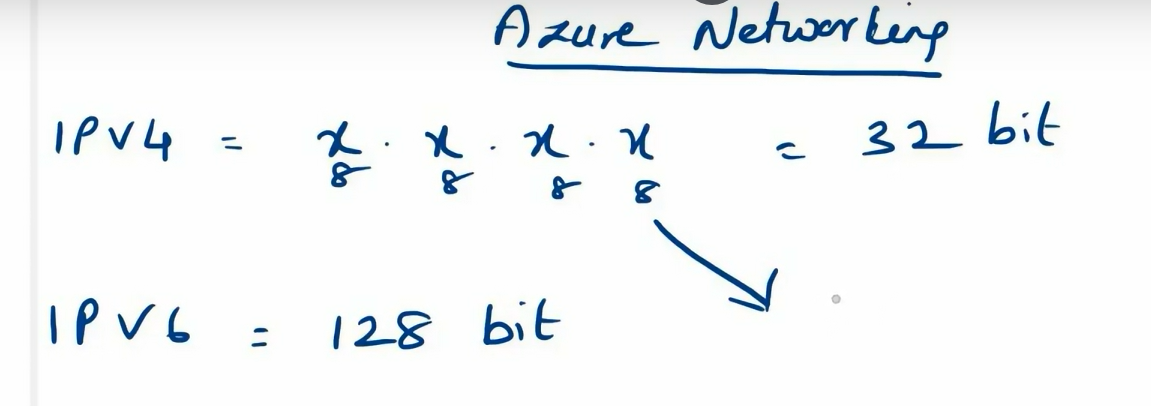 Azure Networking
IPV4 = x . x . x . x = 32 bit
8 8 8 8
IPV6 = 128 bit